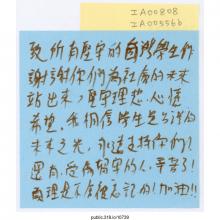 IA00808
IA005566
致所有堅守的國內外學生們
謝謝你們為社會的未來
站出來,堅守理想、心懷
希望,我相信學生是台灣的
未來之光,永遠支持你們!
還有,受傷留守的人,辛苦了!
真理是不會被忘記的!加油!!
public.318.io/10739